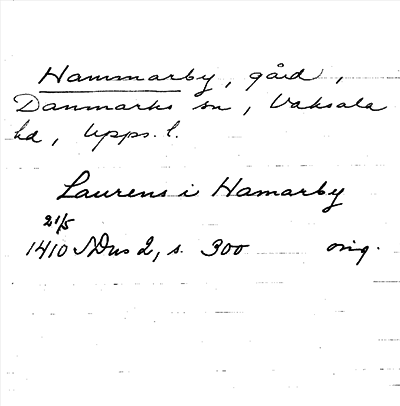 Hammarby, gård,
Danmarks sn, Vaksala
hd, Upps. l.
Laurens i Hamarby
21/5
1410 SDns 2, s. 300 orig.